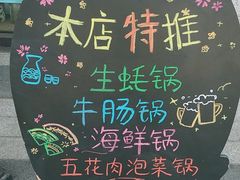 本店特推
生蚝锅
牛肠锅
海鲜锅
五花肉泡菜锅